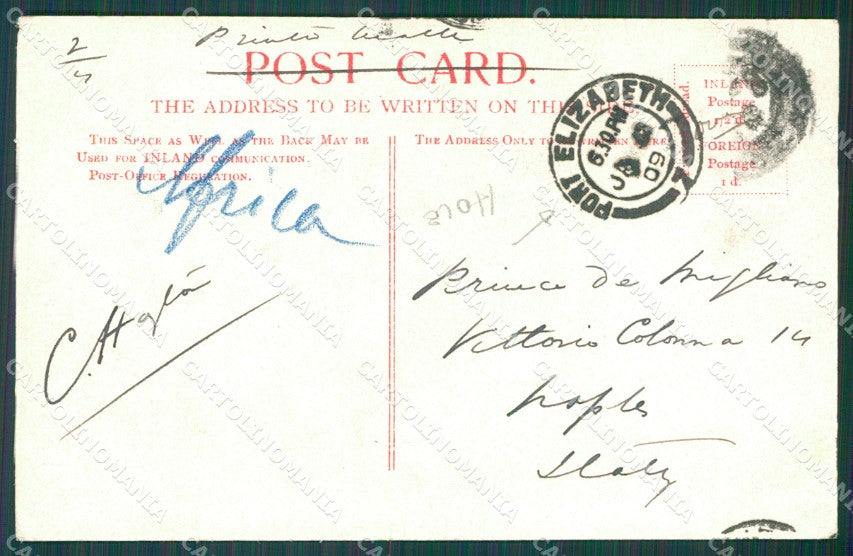 2/
Printed Matter
POST CARD.
THE ADDRESS TO BE WRITTEN ON THE SIDE.
THIS SPACE AS WELL AS THE BACK MAY BE
USED FOR INLAND COMMUNICATION.
POST-OFFICE REGULATION.
THE ADDRESS ONLY TO BE WRITTEN HERE.
INLAND
Postage
1/2 d.
FOREIGN
Postage
1 d.
PORT ELIZABETH
6.30 PM
JA
09
Africa
Prince de Migliano
Vittorio Colonna 14
Naples
Italy
CARTOLINOMANIA